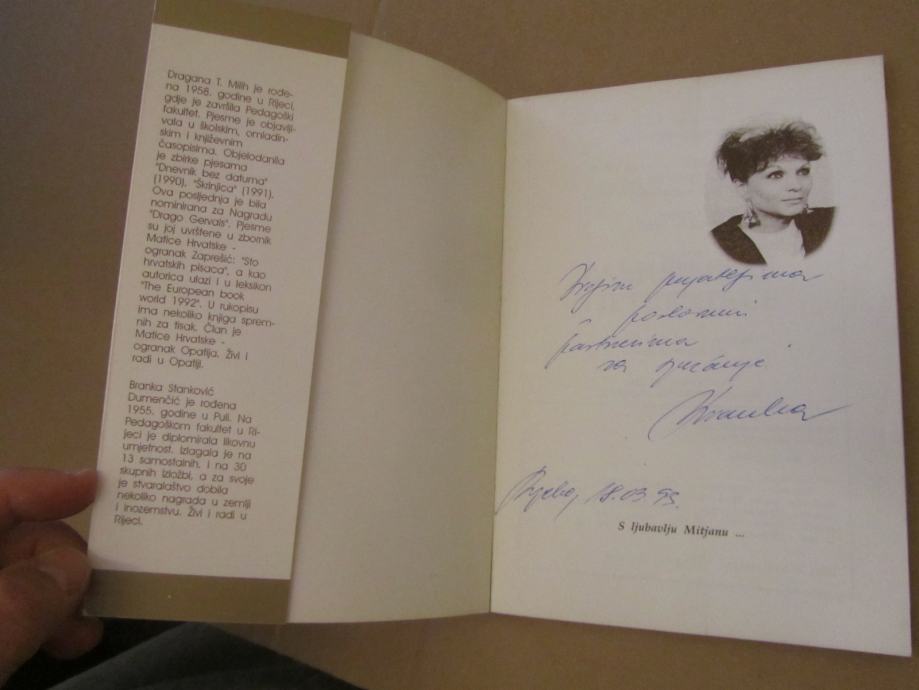 Dragana T. Milih je rođe-
na 1958. godine u Rijeci,
gdje je završila Pedagoški
fakultet. Pjesme je objavlji-
vala u školskim, omladin-
skim i književnim
časopisima. Objelodanila
je zbirke pjesama
"Dnevnik bez datuma"
(1990), "Škrinjica" (1991).
Ova posljednja je bila
nominirana za Nagradu
"Drago Gervais". Pjesme
su joj uvrštene u zbornik
Matice Hrvatske -
ogranak Zaprešić: "Sto
hrvatskih pisaca", a kao
autorica ulazi i u leksikon
"The European book
world 1992". U rukopisu
ima nekoliko knjiga sprem-
nih za tisak. Član je
Matice Hrvatske -
ogranak Opatija. Živi i
radi u Opatiji.
Branka Stanković
Dumenčić je rođena
1955. godine u Puli. Na
Pedagoškom fakultet u Ri-
jeci je diplomirala likovnu
umjetnost. Izlagala je na
13 samostalnih, i na 30
skupnih izložbi, a za svoje
je stvaralaštvo dobila
nekoliko nagrada u zemlji
i inozemstvu. Živi i radi u
Rijeci.
prijateljima
poslovnim
partnerima
za
Branka
Rijeka, 18.03.93.
S ljubavlju Mitjanu ...